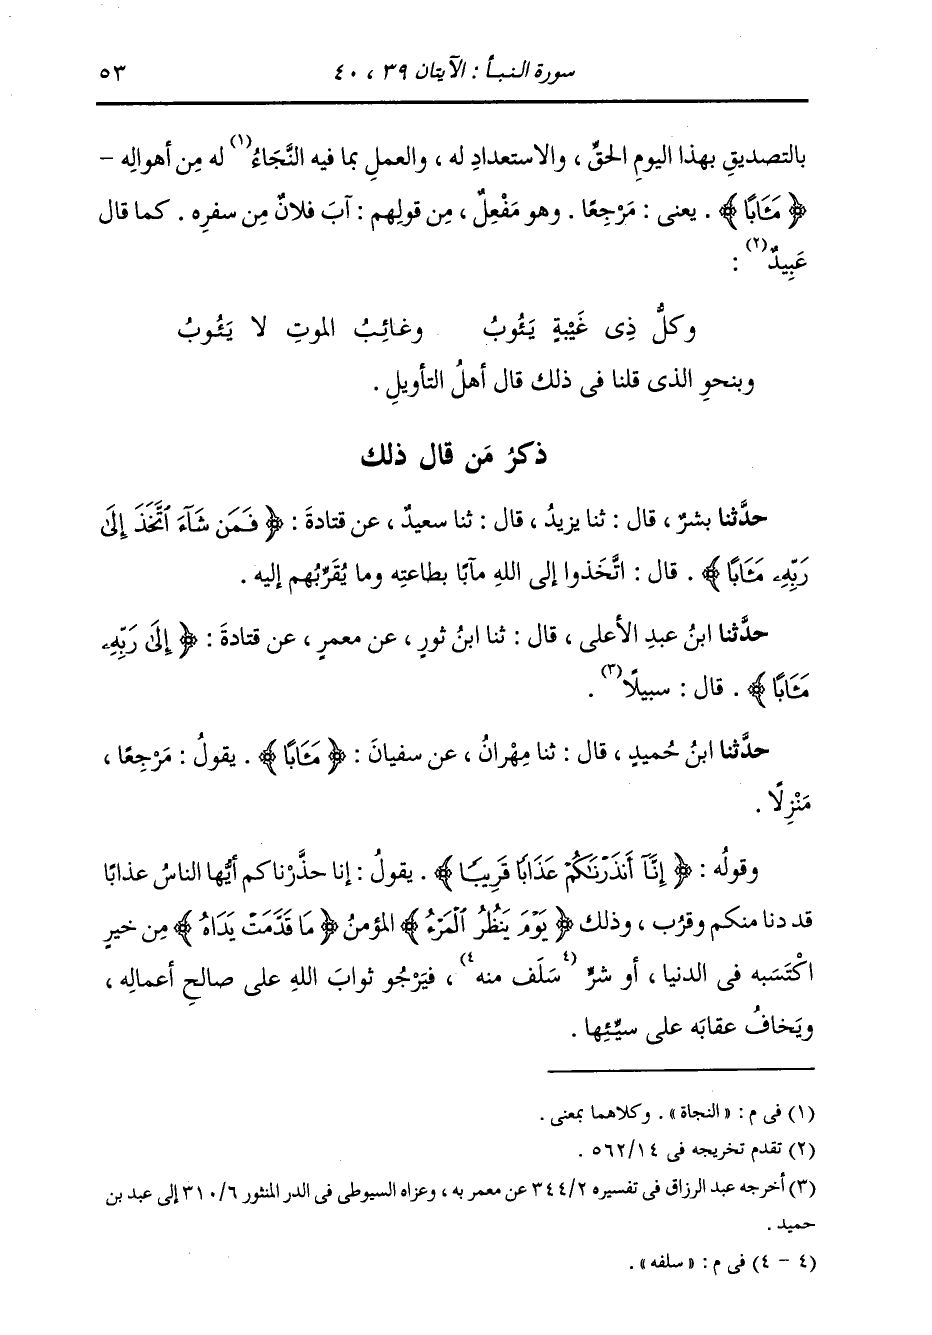 سورة النبأ : الآيتان ٣٩ ، ٤٠ ٥٣
بالتصديقِ بهذا اليومِ الحقِّ ، والاستعدادِ له ، والعملِ بما فيه النَّجَاءُ(١) له مِن أهوالِه –
﴿ مَـَٔابًا ﴾ . يعنى : مَرْجِعًا . وهو مَفْعِلٌ ، مِن قولِهم : آبَ فلانٌ مِن سفرِه . كما قال
عَبِيدٌ(٢) :
وكلُّ ذِى غَيْبةٍ يَئُوبُ وغائِبُ الموتِ لا يَئُوبُ
وبنحوِ الذى قلنا فى ذلك قال أهلُ التأويلِ .
ذكرُ مَن قال ذلك
حدَّثنا بشرٌ ، قال : ثنا يزيدُ ، قال : ثنا سعيدٌ ، عن قتادةَ : ﴿ فَمَن شَآءَ ٱتَّخَذَ إِلَىٰ
رَبِّهِۦ مَـَٔابًا ﴾ . قال : اتَّخَذوا إلى اللهِ مآبًا بطاعتِه وما يُقَرِّبُهم إليه .
حدَّثنا ابنُ عبدِ الأعلى ، قال : ثنا ابنُ ثورٍ ، عن معمرٍ ، عن قتادةَ : ﴿ إِلَىٰ رَبِّهِۦ
مَـَٔابًا ﴾ . قال : سبيلًا(٣) .
حدَّثنا ابنُ حُميدٍ ، قال : ثنا مِهْرانُ ، عن سفيانَ : ﴿ مَـَٔابًا ﴾ . يقولُ : مَرْجِعًا ،
مَنْزِلًا .
وقولُه : ﴿ إِنَّآ أَنذَرْنَٰكُمْ عَذَابًا قَرِيبًا ﴾ . يقولُ : إنا حذَّرْناكم أيُّها الناسُ عذابًا
قد دنا منكم وقرُب ، وذلك ﴿ يَوْمَ يَنظُرُ ٱلْمَرْءُ ﴾ المؤمنُ ﴿ مَا قَدَّمَتْ يَدَاهُ ﴾ مِن خيرٍ
اكْتَسَبه فى الدنيا ، أو شرٍّ (٤سَلَف منه٤) ، فيَرْجُو ثوابَ اللهِ على صالحِ أعمالِه ،
ويَخافُ عقابَه على سيِّئِها .
(١) فى م : « النجاة » . وكلاهما بمعنى .
(٢) تقدم تخريجه فى ٥٦٢/١٤ .
(٣) أخرجه عبد الرزاق فى تفسيره ٣٤٤/٢ عن معمر به ، وعزاه السيوطى فى الدر المنثور ٣١٠/٦ إلى عبد بن
حميد .
(٤ – ٤) فى م : « سلفه » .